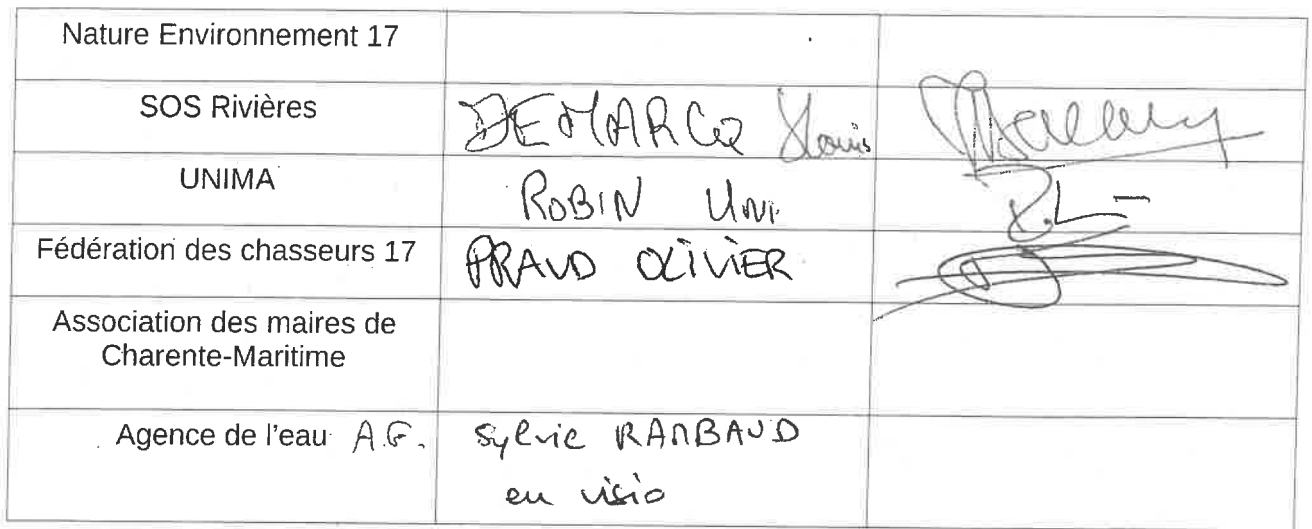 Nature Environnement 17
SOS Rivières DEMARCQ Louis
UNIMA ROBIN
Fédération des chasseurs 17 PRAUD OLIVIER
Association des maires de
Charente-Maritime
Agence de l'eau A.G. Sylvie RAMBAUD
en visio